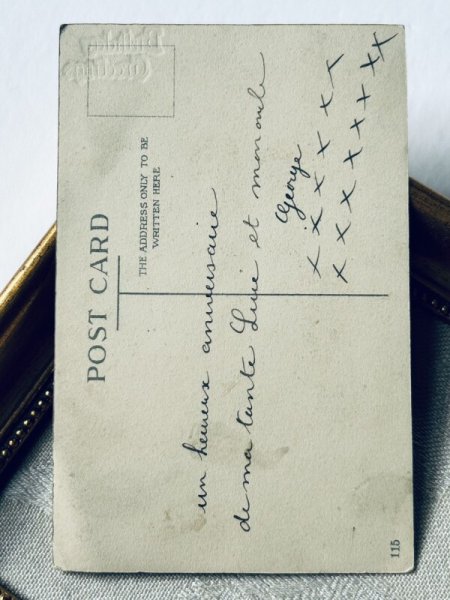 POST CARD
THE ADDRESS ONLY TO BE
WRITTEN HERE
un heureux anniversaire
de ma tante et mon oncle
George
x x x x x x
x x x x x x x x
115